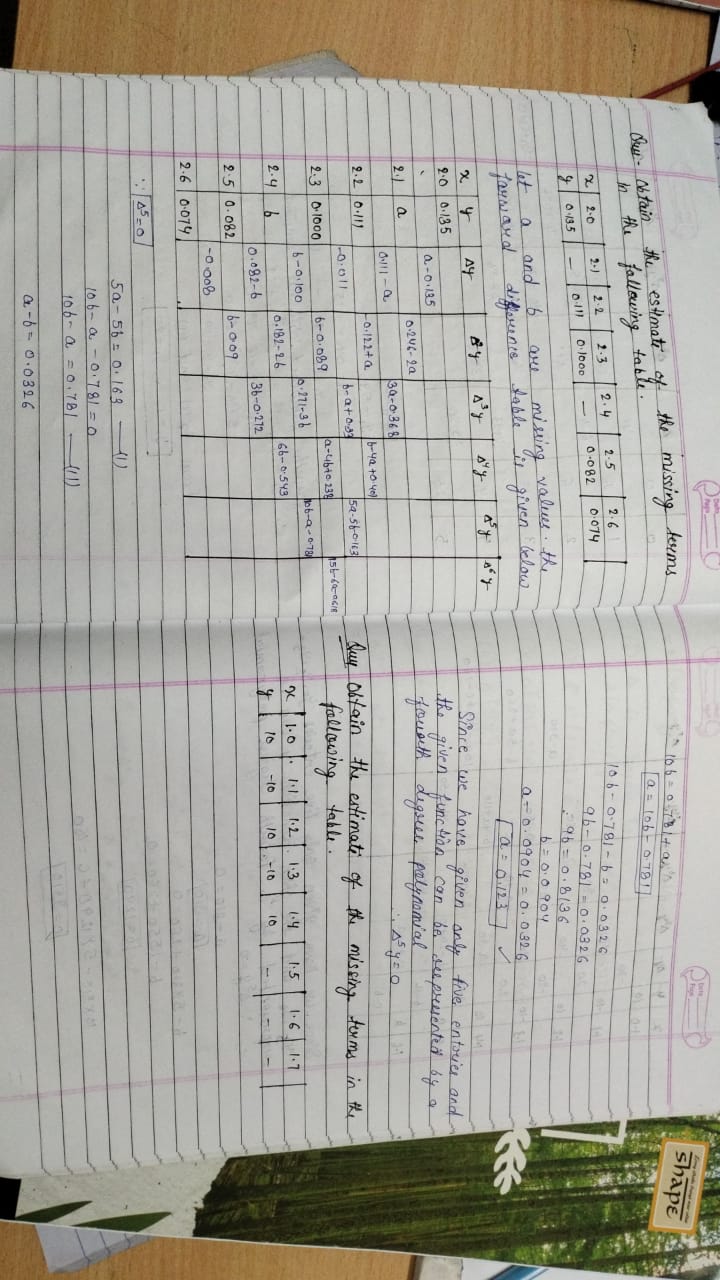 Date
Page
Que- Obtain the estimate of the missing terms
in the following table.
x 2.0 2.1 2.2 2.3 2.4 2.5 2.6
y 0.135 — 0.111 0.1000 — 0.082 0.074
let a and b are missing values. the
forward difference table is given below
x y Δy Δ²y Δ³y Δ⁴y Δ⁵y Δ⁶y
2.0 0.135
a-0.135
2.1 a 0.246-2a
0.111-a 3a-0.368
2.2 0.111 -0.122+a b-4a+0.401
-0.011 b-a+0.33 5a-5b-0.163
2.3 0.1000 b-0.089 a-4b+0.238 15b-6a-0.618
b-0.100 0.271-3b 10b-a-0.781
2.4 b 0.182-2b 6b-0.543
0.082-b 3b-0.272
2.5 0.082 b-0.09
-0.008
2.6 0.074
∵ Δ⁵=0
5a-5b=0.163 —(I)
10b-a-0.781=0
10b-a=0.781 —(II)
a-b=0.0326
Date
Page
10b=0.781+a
a=10b-0.781
10b-0.781-b=0.0326
9b-0.781=0.0326
∴ 9b=0.8136
b=0.0904
a-0.0904=0.0326
a=0.123 ✓
Since we have given only five entories and
the given function can be represented by a
fourth degree polynomial
∴ Δ⁵y=0
Que Obtain the estimate of the missing terms in the
following table.
x 1.0 1.1 1.2 1.3 1.4 1.5 1.6 1.7
y 10 -10 10 -10 10 — — —
Living shades always near action
SHAPE